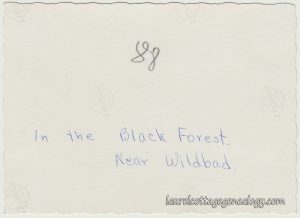 In the Black Forest.
Near Wildbad.
laurelcottagegenealogy.com